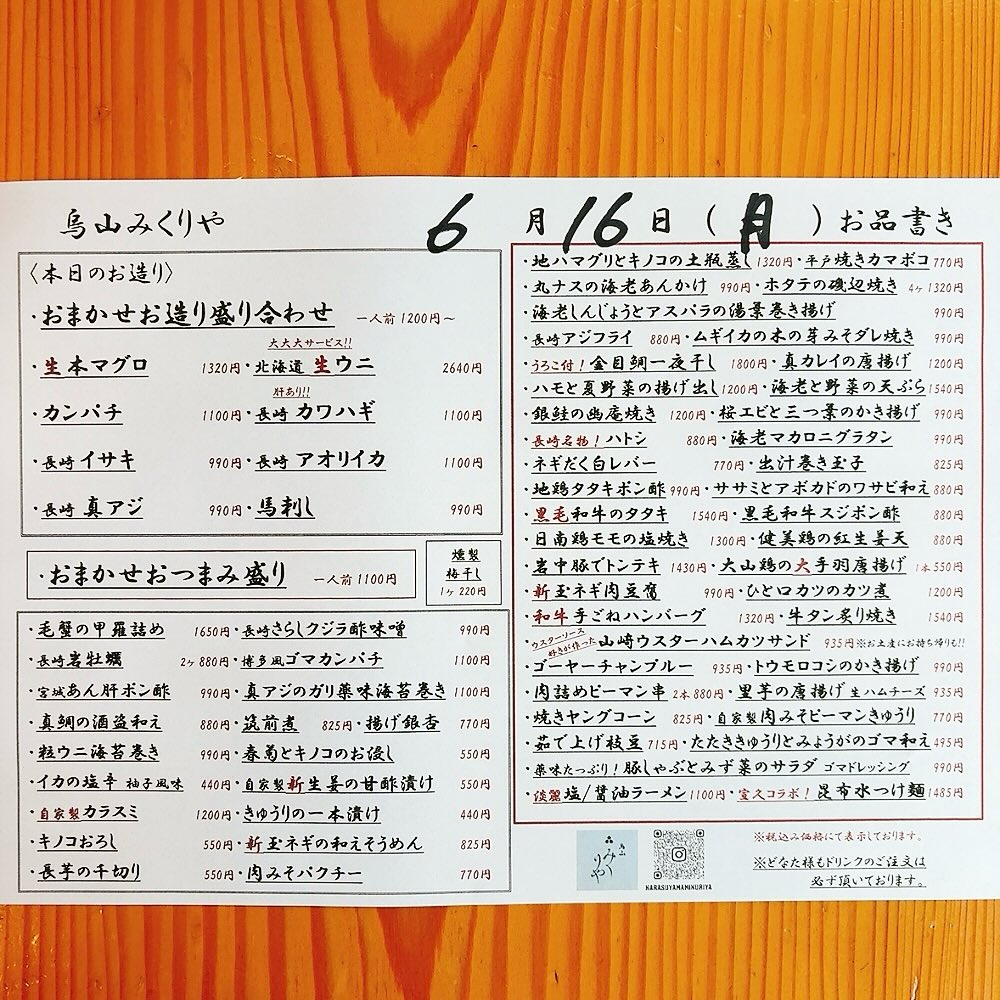 烏山みくりや 6月16日(月)お品書き
〈本日のお造り〉
・おまかせお造り盛り合わせ 一人前1200円〜
大大大サービス!!
・生本マグロ 1320円・北海道 生ウニ 2640円
肝あり!!
・カンパチ 1100円・長崎 カワハギ 1100円
・長崎 イサキ 990円・長崎 アオリイカ 1100円
・長崎 真アジ 990円・馬刺し 990円
・おまかせおつまみ盛り 一人前1100円
燻製
梅干し
1ヶ220円
・毛蟹の甲羅詰め 1650円・長崎さらしクジラ酢味噌 990円
・長崎岩牡蠣 2ヶ880円・博多風ゴマカンパチ 1100円
・宮城あん肝ポン酢 990円・真アジのガリ薬味海苔巻き 1100円
・真鯛の酒盗和え 880円・筑前煮 825円・揚げ銀杏 770円
・粒ウニ海苔巻き 990円・春菊とキノコのお浸し 550円
・イカの塩辛 柚子風味 440円・自家製新生姜の甘酢漬け 550円
・自家製カラスミ 1200円・きゅうりの一本漬け 440円
・キノコおろし 550円・新玉ネギの和えそうめん 825円
・長芋の千切り 550円・肉みそパクチー 770円
・地ハマグリとキノコの土瓶蒸し 1320円・平戸焼きカマボコ 770円
・丸ナスの海老あんかけ 990円・ホタテの磯辺焼き 4ヶ1320円
・海老しんじょうとアスパラの湯葉巻き揚げ 990円
・長崎アジフライ 880円・ムギイカの木の芽みそダレ焼き 990円
・うろこ付!金目鯛一夜干し 1800円・真カレイの唐揚げ 1200円
・ハモと夏野菜の揚げ出し 1200円・海老と野菜の天ぷら 1540円
・銀鮭の幽庵焼き 1200円・桜エビと三つ葉のかき揚げ 990円
・長崎名物!ハトシ 880円・海老マカロニグラタン 990円
・ネギだく白レバー 770円・出汁巻き玉子 825円
・地鶏タタキポン酢 990円・ササミとアボカドのワサビ和え 880円
・黒毛和牛のタタキ 1540円・黒毛和牛スジポン酢 880円
・日南鶏モモの塩焼き 1300円・健美鶏の紅生姜天 880円
・岩中豚でトンテキ 1430円・大山鶏の大手羽唐揚げ 1本550円
・新玉ネギ肉豆腐 990円・ひと口カツのカツ煮 1200円
・和牛手ごねハンバーグ 1320円・牛タン炙り焼き 1540円
・ウスターソース好きが作った山崎ウスターハムカツサンド 935円※お土産にお持ち帰りも!!
・ゴーヤーチャンプルー 935円・トウモロコシのかき揚げ 990円
・肉詰めピーマン串 2本880円・里芋の唐揚げ 生ハムチーズ 935円
・焼きヤングコーン 825円・自家製肉みそピーマンきゅうり 770円
・茹で上げ枝豆 715円・たたききゅうりとみょうがのゴマ和え 495円
・薬味たっぷり!豚しゃぶとみず菜のサラダ ゴマドレッシング 990円
・淡麗塩/醤油ラーメン 1100円・室久コラボ!昆布水つけ麺 1485円
烏山
みくりや
KARASUYAMAMIKURIYA
※税込み価格にて表示しております。
※どなた様もドリンクのご注文は
必ず頂いております。